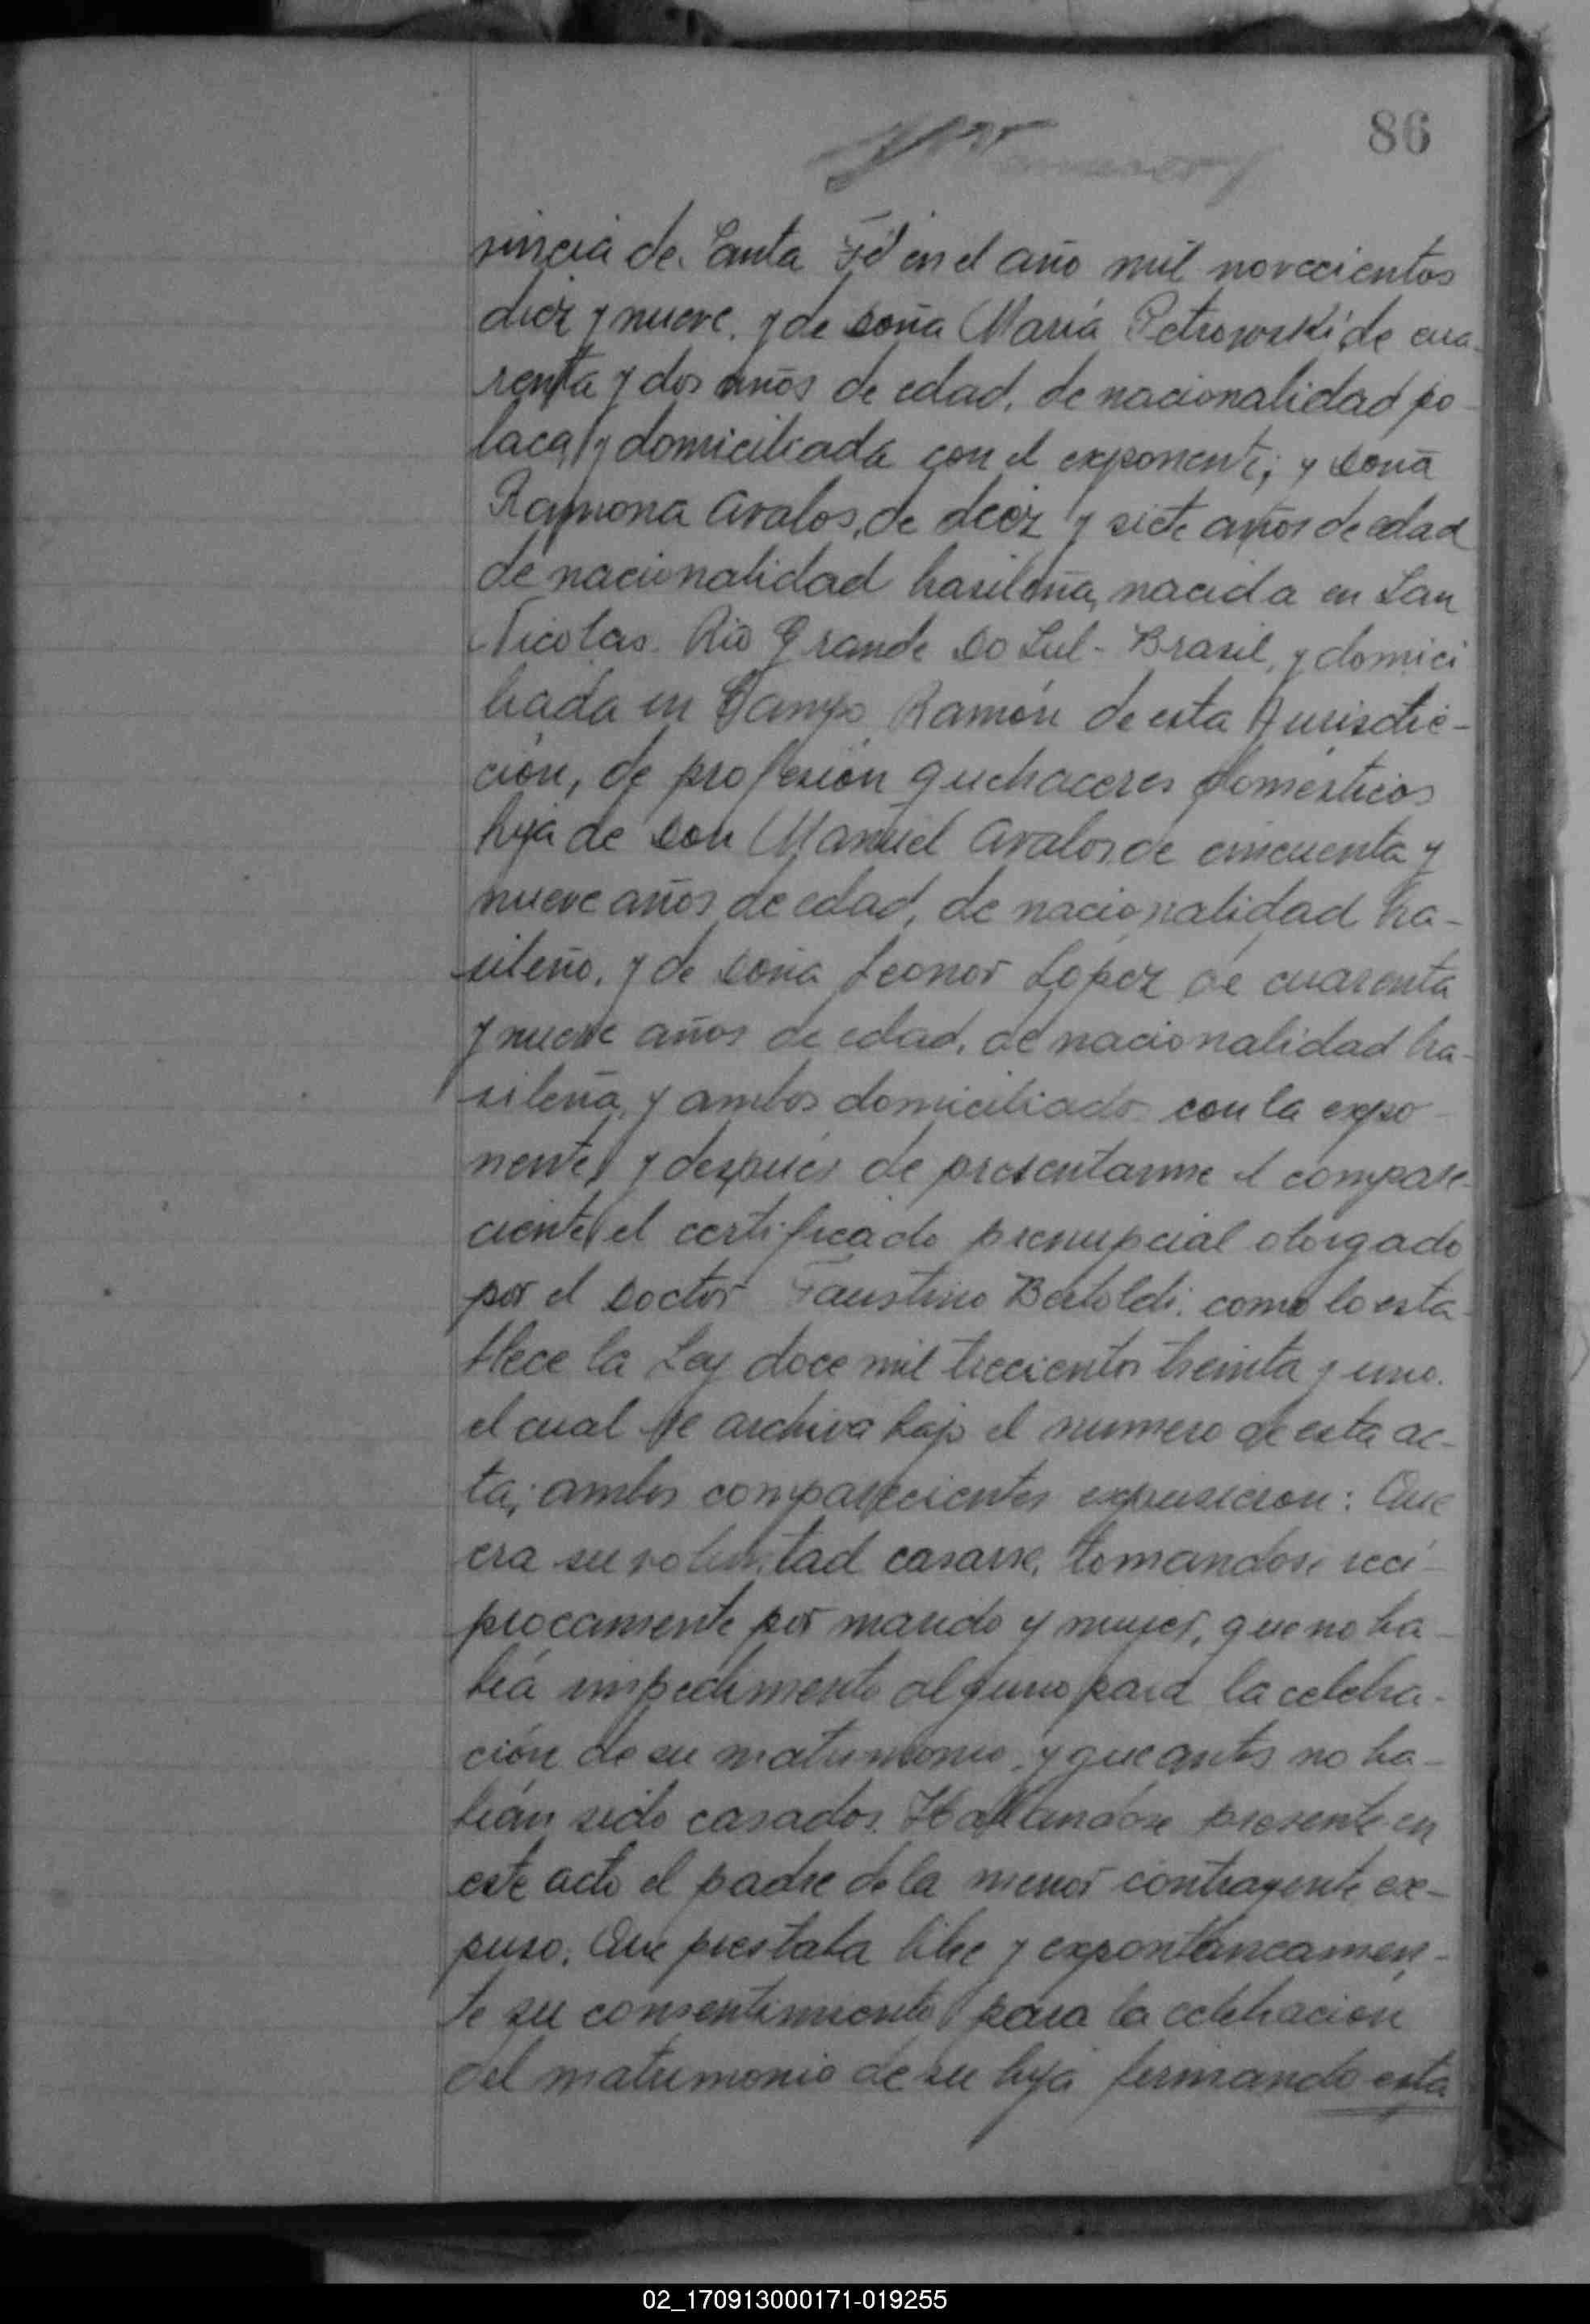 86
vincia de Santa Fé en el año mil novecientos
diez y nueve, y de doña María Petrowski, de cua-
renta y dos años de edad, de nacionalidad po-
laca, y domiciliada con el exponente; y doña
Ramona Avalos, de diez y siete años de edad
de nacionalidad brasileña, nacida en San
Nicolas. Rio Grande do Sul - Brasil, y domici
liada en Campo Ramón de esta Jurisdic-
ción, de profesión quehaceres domésticos
hija de don Manuel Avalos, de cincuenta y
nueve años de edad, de nacionalidad bra-
sileño, y de doña Leonor López de cuarenta
y nueve años de edad, de nacionalidad bra-
sileña, y ambos domiciliados con la expo-
nente, y después de presentarme el compare-
ciente el certificado prenupcial otorgado
por el Doctor Faustino Bertoldi, como lo esta-
blece la Ley doce mil trecientos treinta y uno.
el cual se archiva bajo el numero de esta ac-
ta; ambos comparecientes expusieron: Que
era su voluntad casarse, tomandose recí-
procamente por marido y mujer, que no ha-
bía impedimento alguno para la celebra-
ción de su matrimonio, y que antes no ha-
bían sido casados. Hallandose presente en
este acto el padre de la menor contrayente, ex-
puso. Que prestaba libre y expontaneamen-
te su consentimiento para la celebracion
del matrimonio de su hija firmando esta
02_170913000171-019255